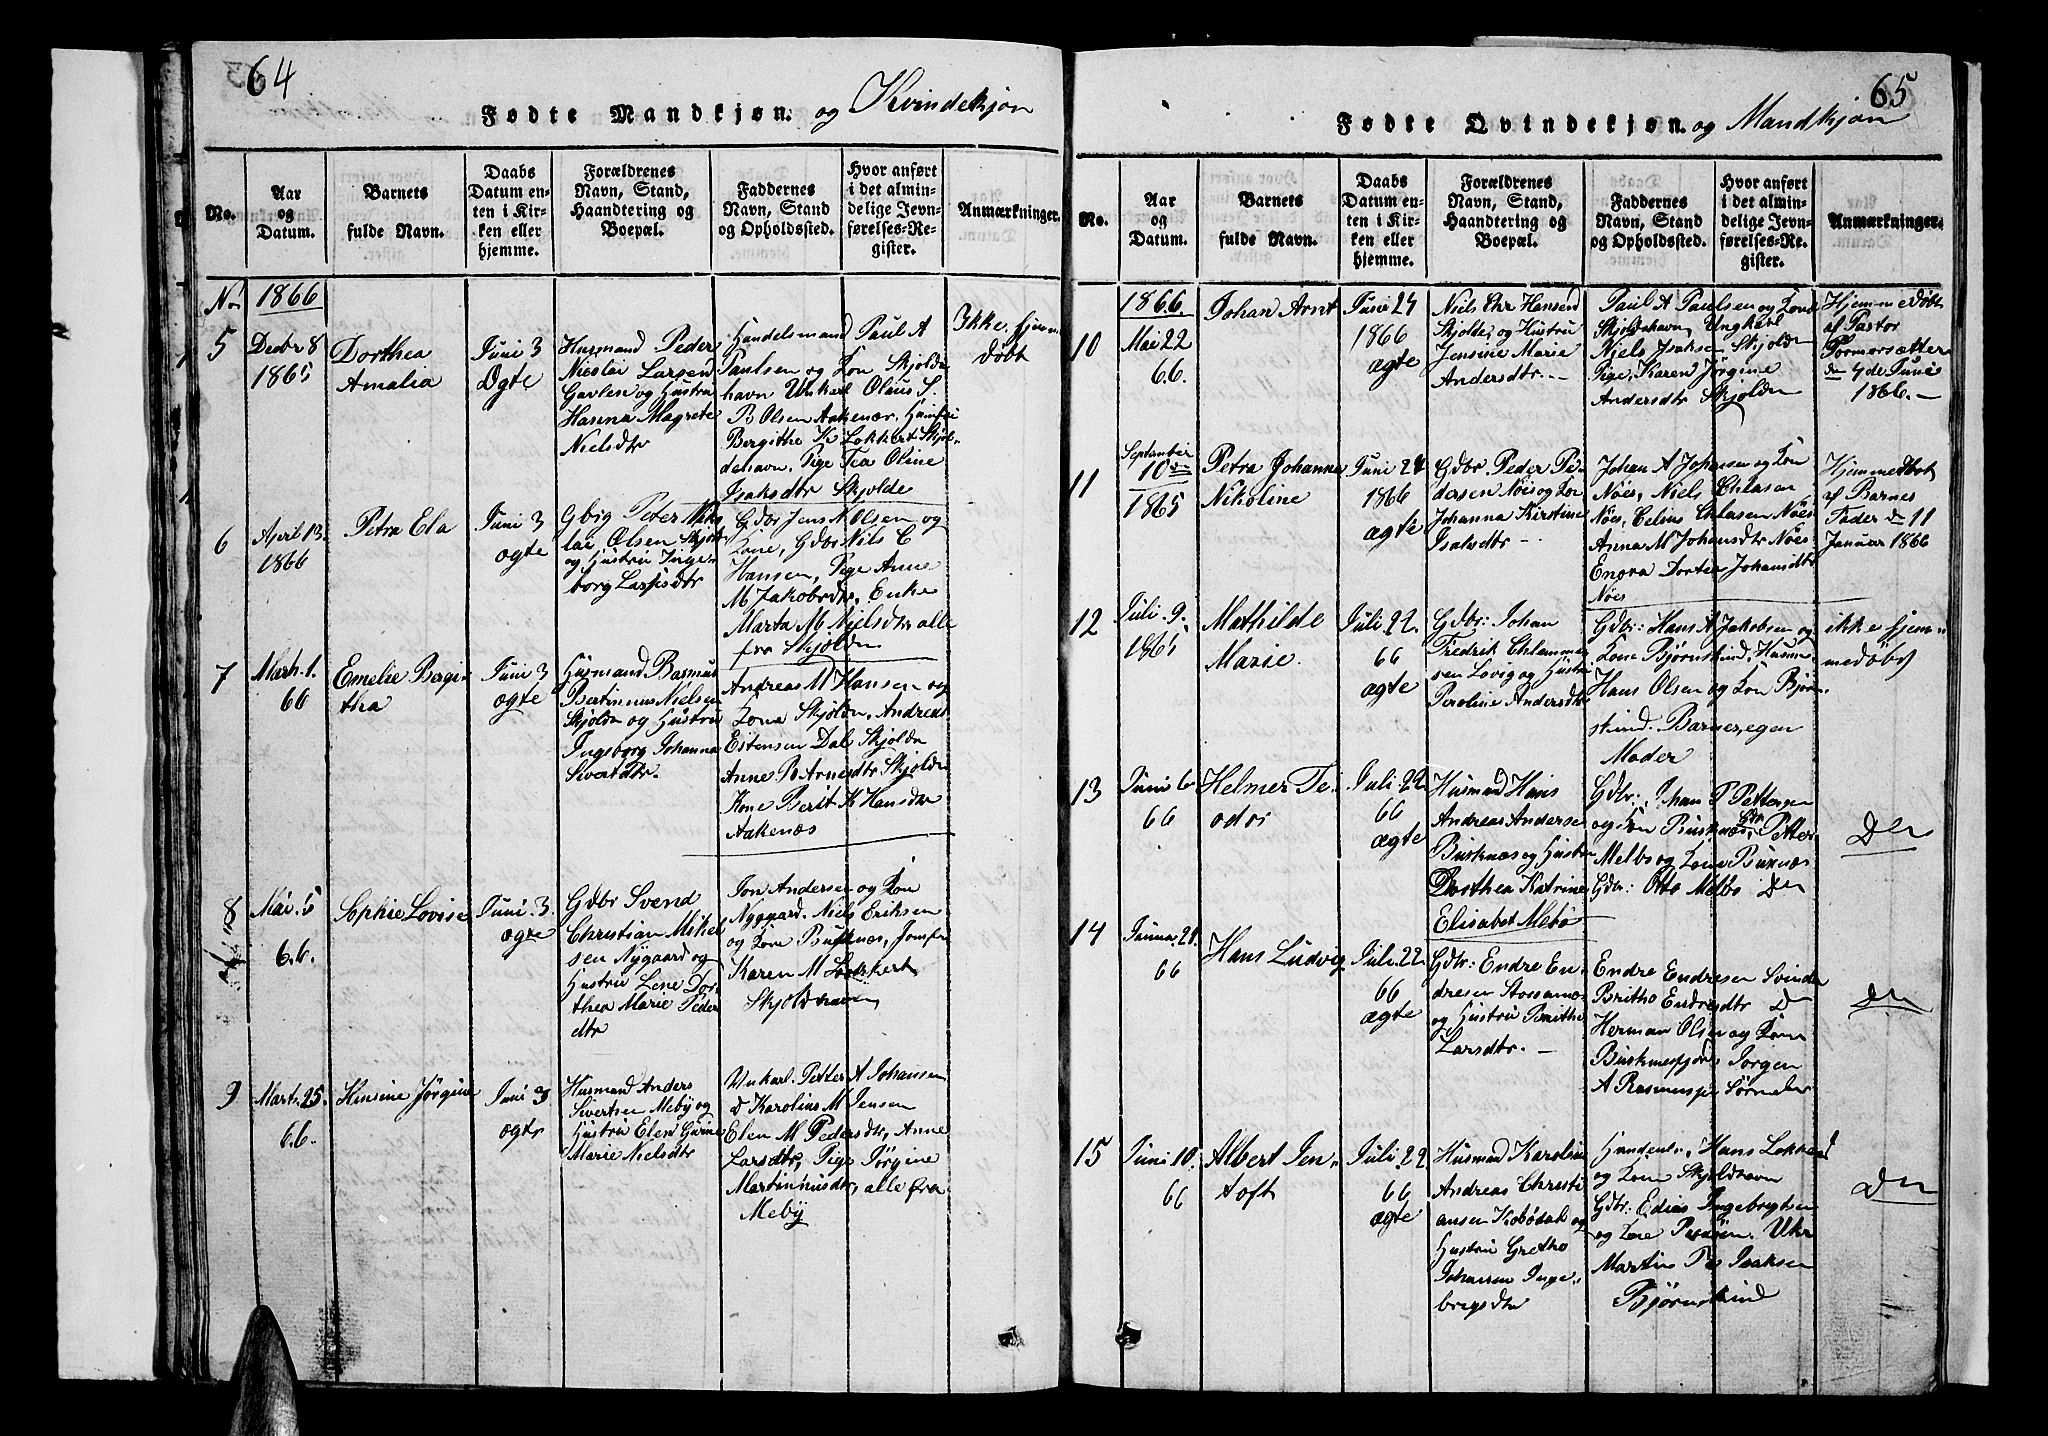 64
Fødte Mandkjøn. og Kvindekjøn
No.
Aar
og
Datum.
Barnets
fulde Navn.
Daabs
Datum en-
ten i Kir-
ken eller
hjemme.
Forældrenes
Navn, Stand,
Haandtering og
Boepæl.
Faddernes
Navn, Stand
og Opholdssted.
Hvor anført
i det almin-
delige Jevn-
førelses-Re-
gister.
Anmærkninger.
No
1866
5
Decbr 8
1865
Dorthea
Amalia
Juni 3
Ægte
Husmand Peder
Nicolai Larsen
og Hustru
Hanna Magrete
Nielsdtr
Handelsmand Paul A
Paulsen og Kon Skjolde
havn Unkarl Olaus S.
B Olsen Aakenær, Jomfru
Bergithe K Lokkert Skjol-
dehavn, Pige Tea Oline
Isaksdtr Skjolde
Ikke hjem
døbt
6
April 13.
1866
Petra Ela
Juni 3
ægte
Gbrg Peter Niko
lai Olsen Skjold
og Hustru Inge-
borg Larsdtr
Gdbr Jens N Olsen og
Kone, Gdbr Nils C
Hansen, Pige Anne
M Jakobsdtr, Enke
Marta M Nielsdtr alle
fra Skjolden
7
Marh. 1.
66
Emelie Bergi-
tha
Juni 3
ægte
Husmand Rasmus
Bertinus Nielsen
Skjolde og Hustru
Ingeborg Johanna
Sivertdtr.
Andreas M Hansen og
Kona Skjolde, Andreas
Estensen Dal Skjolde
Anne B Arnesdtr Skjolde
Kone Berit K Hansdtr
Aakenæs
8
Mai. 5
66.
Sophie Lovise
Juni 3.
ægte
Gdbr Svend
Christian Mikel
sen Nygaard og
Hustru Lene Dor
thea Marie Peder
dtr
Jon Andersen og Kon
Nyggaard. Niels Eriksen
og Kone Buknæs, Jomfru
Karen M Lockert
Skjoldhavn
9
Mart. 25.
66.
Hensine Jørgine
Juni 3
ægte
Husmand Anders
Sivertsen Meby og
Hustru Elen Gurine
Marie Nielsdtr
Unkarl. Petter A Johansen
D Karolius M Jensen
Elen M Pedersdtr, Anne
Larsdtr, Pige Jørgine
Martinusdtr, alle fra
Meby
65
Fødte Qvindekjøn. og Mandkjøn
No.
Aar
og
Datum.
Barnets
fulde Navn.
Daabs
Datum en-
ten i Kir-
ken eller
hjemme.
Forældrenes
Navn, Stand,
Haandtering og
Boepæl.
Faddernes
Navn, Stand
og Opholdssted.
Hvor anført
i det almin-
delige Jevn-
førelses-Re-
gister.
Anmærkninger.
1866.
10
Mai 22
66.
Johan Arnt
Juni 24
1866
ægte
Niels Chr Hansen
Skjolde og Hustru
Jensine Marie
Andersdtr. -
Paul A Paulsen og Kone
Skjoldehavn, Ungkarl
Niels Isaksen Skjolde
Pige, Karen Jørgine
Andersdtr Skjolde
Hjemmedøbt
af Pastor
den 4de Juni
1866. -
11
September
10de
1865
Petra Johanna
Nikoline
Juni 24
1866
ægte
Gdbr. Peder Pe-
dersen Nøis og Kon
Johanna Kirstine
Isaksdtr -
Johan A Johansen og Kon
Nöes, Niels Chlasen
Nöes, Celius Chlasen Nöes
Anna M Johansdtr Nöes
Enora Dortea Johansdtr
Nöes
Hjemmedöbt
af Barnes
Fader den 11
Januar 1866
12
Juli. 9.
1865
Mathilde
Marie.
Juli. 22.
66
ægte
Gdbr: Johan
Fredrik Chlammer
sen Lovig og Hustru
Peroline Andersdtr
Gdbr: Hans A Jakobsen og
Kone Björnskind, Husm:
Hans Olsen og Kon Björn
skind. Barnes, egen
Moder
ikke hjem-
medöbt
13
Juni 6
66
Helmer Te-
odor
Juli 22
66
ægte
Husmand Hans
Andreas Anderse
Buknæs og Hustru
Dorthea Katrine
Elisabet Mebö
Gdbr: Johan P Pettersen
og Kon Buknæs, Gbr Petter
Melbo og Kone Buknæs
Gdbr: Otto Melbo Do
Do
14
Janua 21.
66
Hans Ludvig
Juli. 22.
66
ægte
Gdbr: Endre En-
dresen
og Hustru Brithe
Larsdtr. -
Endre Endresen
Britho Endresdtr Do
Herman Olsen og Kone
Buknesfjord Jorgen
A Rasmussen
Do
15
Juni 10.
66
Albert Jen-
toft
Juli. 22
66
ægte
Husmand Karolius
Andreas Christi
ansen Kobbedal og
Hustru Gretho
Johanna Inge-
brigsdtr
Handenl., Hans Lokkert
og Kone Skjoldhavn
Gdbr: Edias Ingebrigtsen
og Kone Uka
Martin Isaksen
Björnskind
Do